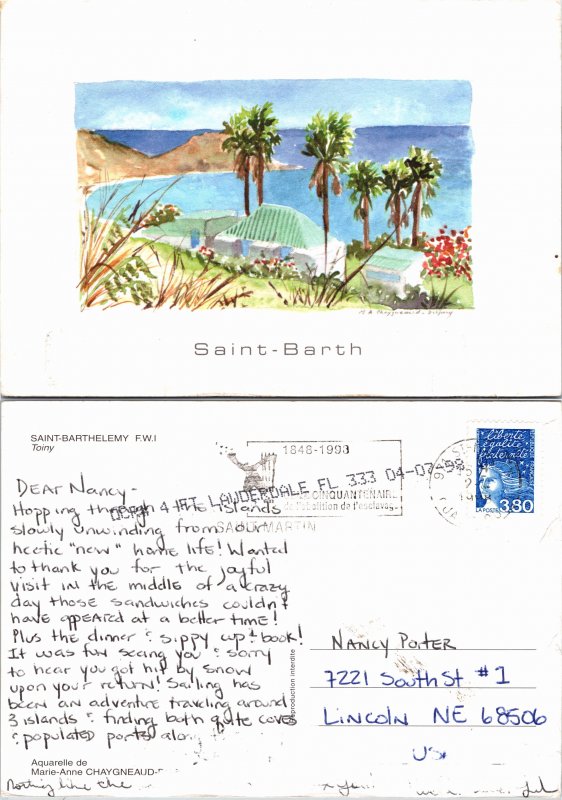 Saint-Barth
SAINT-BARTHELEMY F.W.I
Toiny
1848-1998
CINQUANTENAIRE
de l'abolition de l'esclavag
SAINT MARTIN
4 FT LAUDERDALE FL 333 04-07-98
liberté
égalité
fraternité
LA POSTE
3,80
DEAR NANCY-
Hopping through the islands
slowly unwinding from our
hectic "new" home life! Wanted
to thank you for the joyful
visit in the middle of a crazy
day those sandwiches couldn't
have appeared at a better time!
Plus the dinner & sippy cup & book!
It was fun seeing you & sorry
to hear you got hit by snow
upon your return! Sailing has
been an adventure traveling around
3 islands & finding both quite coves
& populated ports along
Nothing like the
NANCY POTTER
7221 SOUTH ST #1
LINCOLN NE 68506
US
production interdite
Aquarelle de
Marie-Anne CHAYGNEAUD-